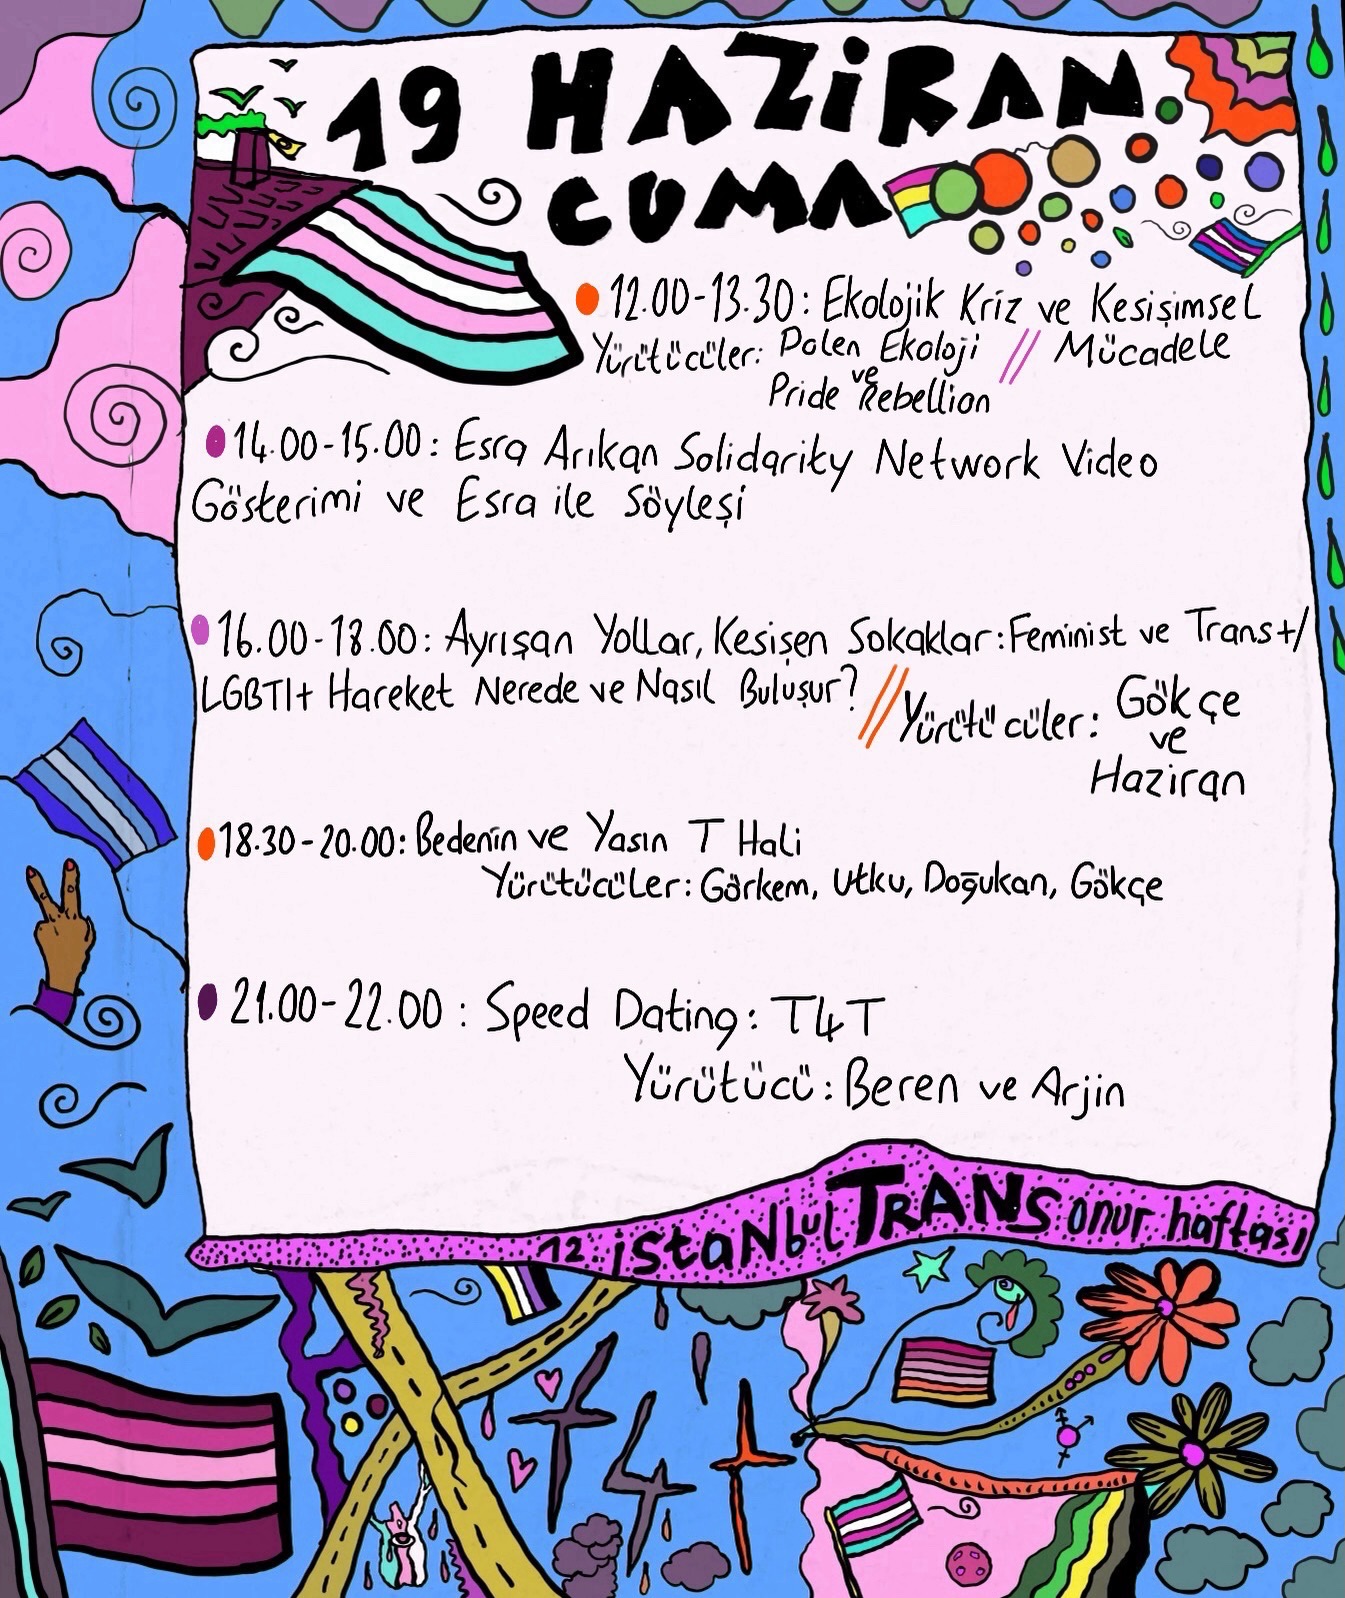 19 HAZİRAN
CUMA
12.00-13.30: Ekolojik Kriz ve Kesişimsel
Yürütücüler: Polen Ekoloji // Mücadele
ve
Pride Rebellion
14.00-15.00: Esra Arıkan Solidarity Network Video
Gösterimi ve Esra ile Söyleşi
16.00-18.00: Ayrışan Yollar, Kesişen Sokaklar: Feminist ve Trans+/
LGBTI+ Hareket Nerede ve Nasıl Buluşur? // Yürütücüler: Gökçe
ve
Haziran
18.30-20.00: Bedenin ve Yasın T Hali
Yürütücüler: Görkem, Utku, Doğukan, Gökçe
21.00-22.00: Speed Dating: T4T
Yürütücü: Beren ve Arjin
12. istanbul TRANS onur haftası
t4t